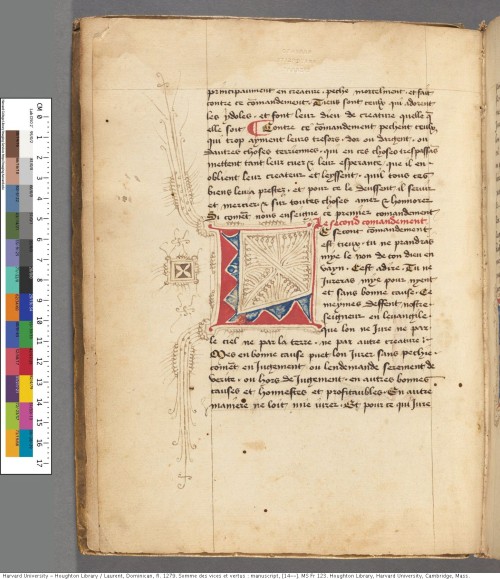 principaument en creature peche mortelment. et fait
contre ce comandement. Tieus sont ceulx qui adorent
les ydoles. et font leur dieu de creature quelle q̃
elle soit ¶ Contre ce comandement pechent ceulx
qui trop ayment leurs tresors. dor ou dargent. ou
dautres choses terriennes. qui en ces choses trespassãs
mettent tant leur cuer & leur esperance que il en-
oblient leur createur et leyssent. qui tous ces
biens leur a prestez. et pour ce le deussent il seruir
et mercier & sur toutes choses amer & honnorer
Si comẽt nous enseigne ce premier comandement
Le second comandement.
Le second comandement
est tieux. tu ne prendras
mye le non de ton dieu en
vayn. Cest adire. Tu ne
Jureras mye pour nyent
et sans bonne cause. Ce
meymes deffent nostre
seigneur en leuangile.
que lon ne Jure ne par
le ciel ne par la terre. ne par autre creature.
Mes en bonne cause puet lon Jurer sans pechie.
comẽt en Jugement ou len demande serement de
verite. ou hors de Jugement. en autres bonnes
causes et honnestes et profitaubles. En autre
maniere ne loit mie iurer. Et pour ce qui Jure
CM 0 1 2 3 4 5 6 7 8 9 10 11 12 13 14 15 16 17
Harvard University - Houghton Library / Laurent, Dominican, fl. 1279. Somme des vices et vertus : manuscript, [14--]. MS Fr 123. Houghton Library, Harvard University, Cambridge, Mass.